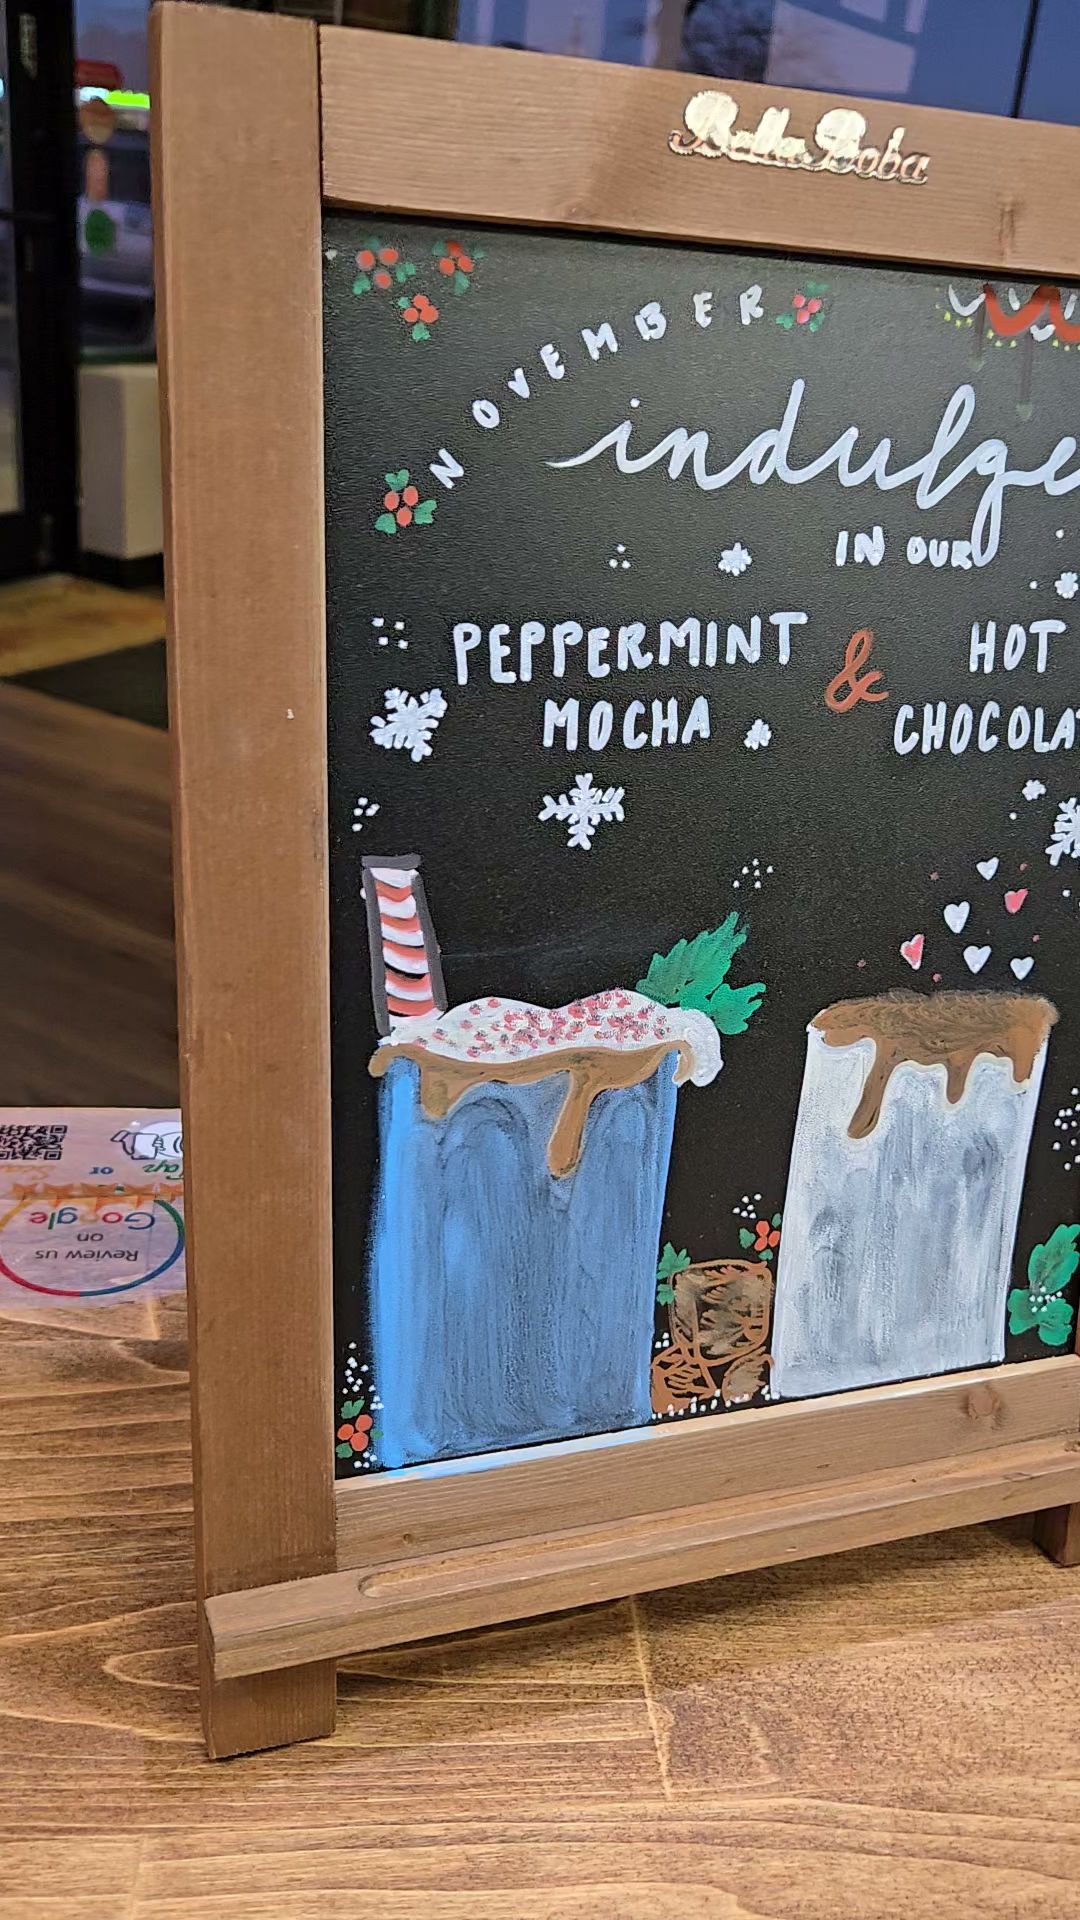 Bella Boba
NOVEMBER
indulge
IN OUR
PEPPERMINT & HOT
MOCHA CHOCOLAT
Tap
or
Google
on
Review us